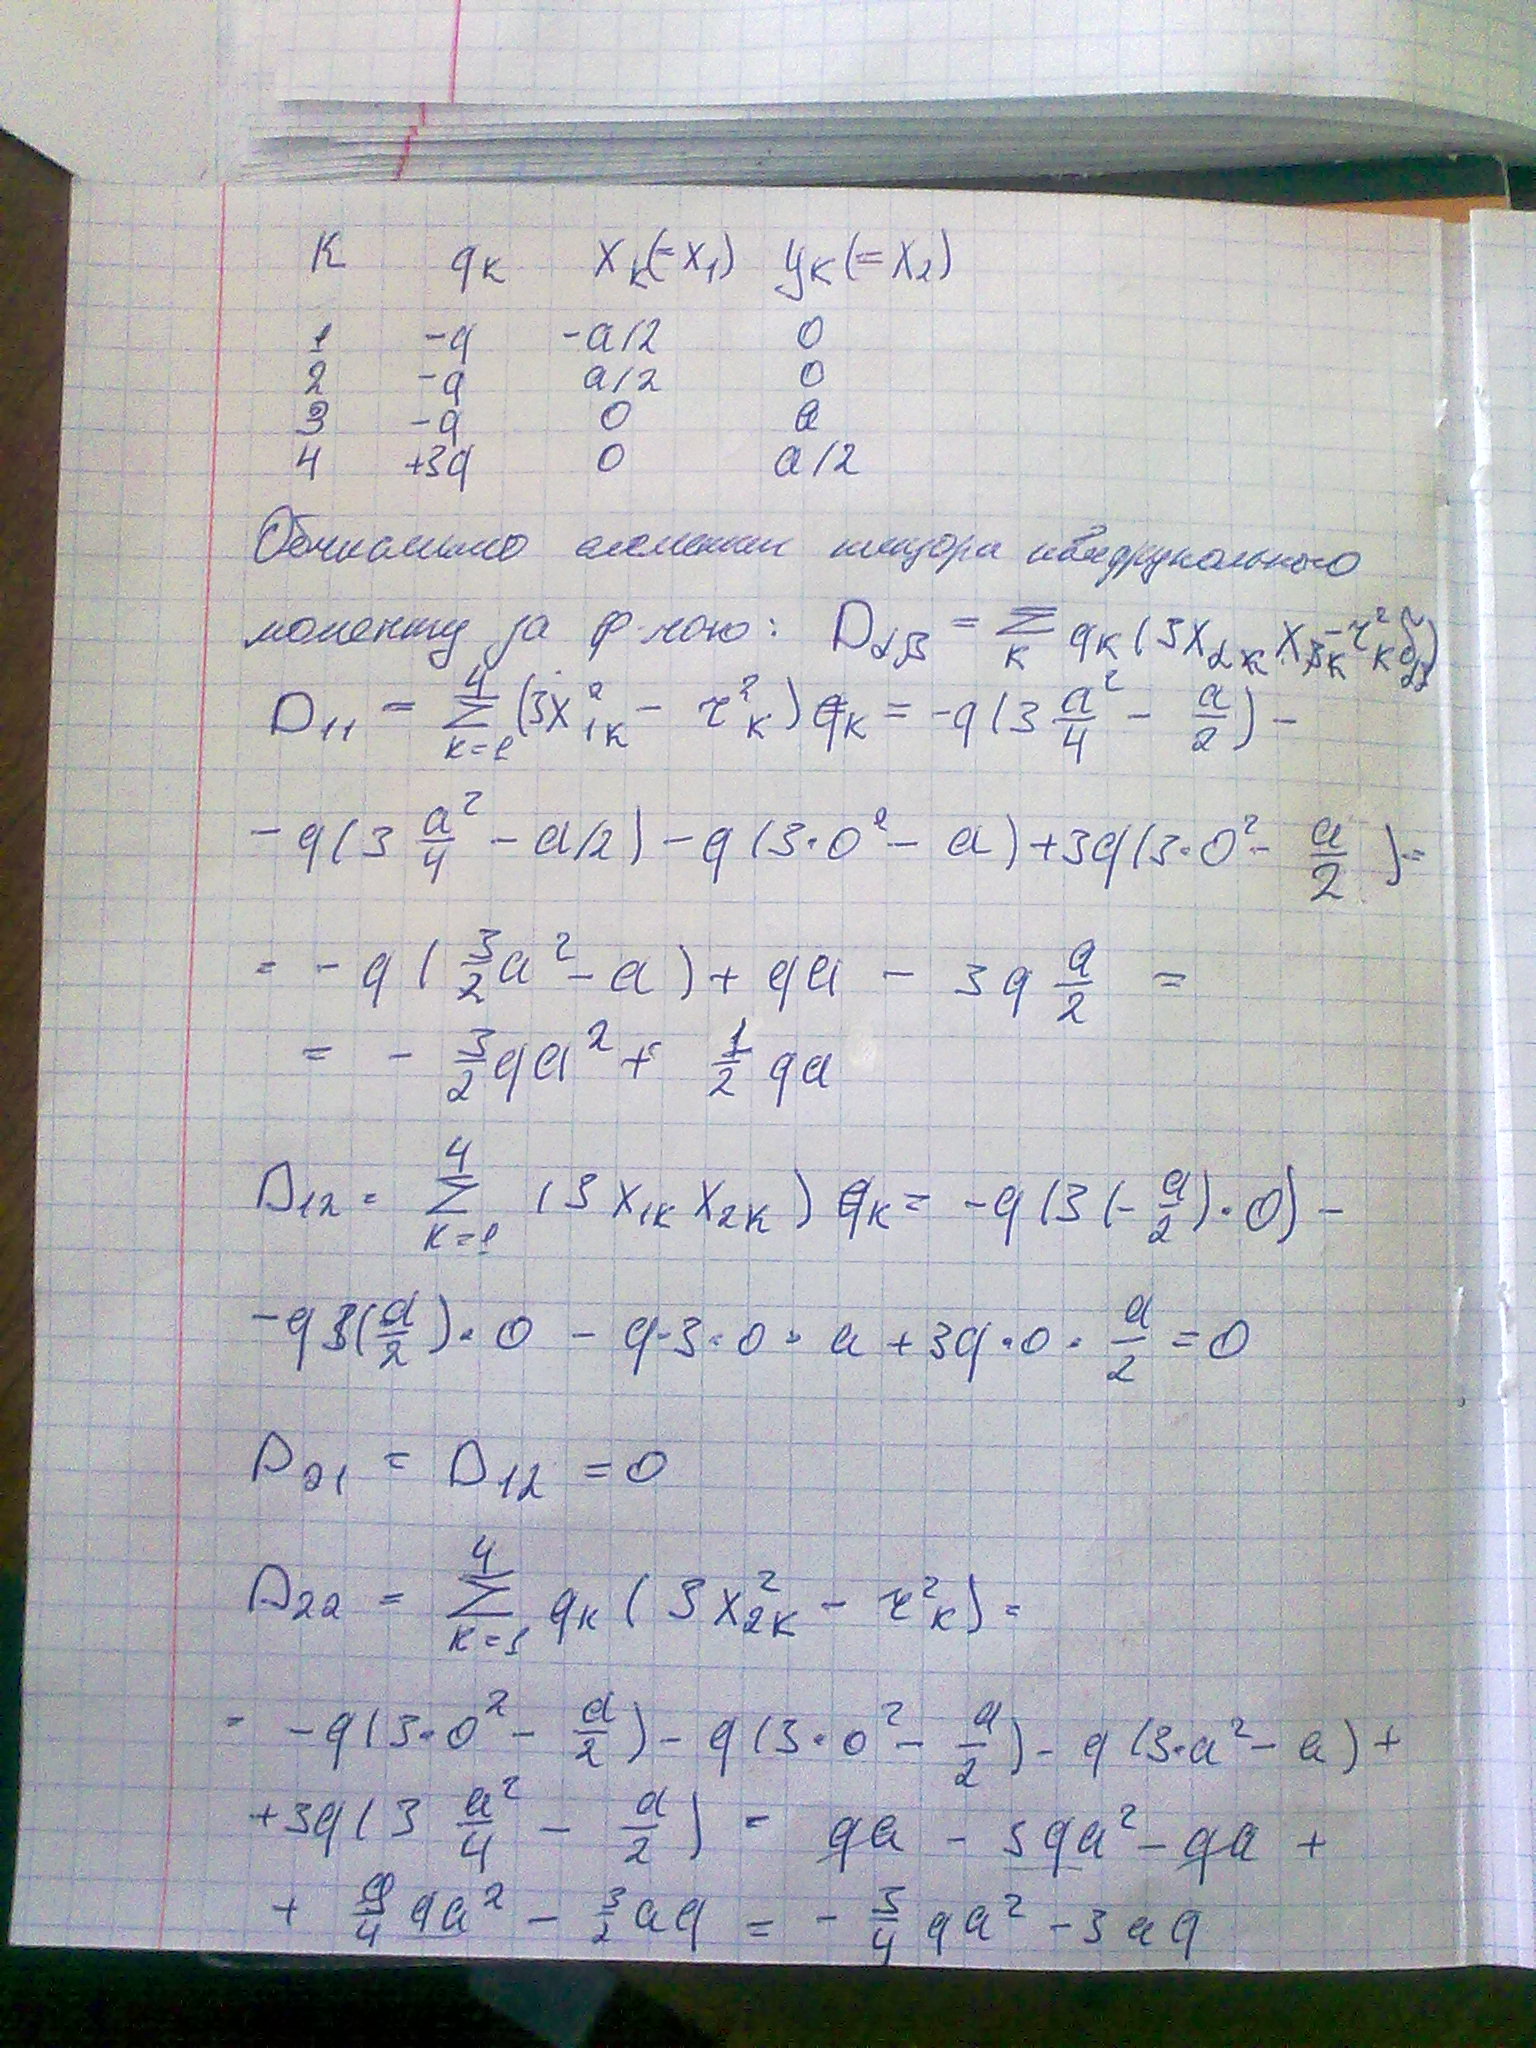 K qк Xк(=X₁) yк(=X₂)
1 -q -a/2 0
2 -q a/2 0
3 -q 0 a
4 +3q 0 a/2
Обчислимо елементи тензора квадрупольного
моменту за ф-лою: Dαβ = Σ_к qк(3Xαк Xβк - r²к δαβ)
D₁₁ = Σ_{к=1}^{4} (3X²₁к - r²к) qк = -q(3 a²/4 - a/2) -
-q(3 a²/4 - a/2) - q(3·0² - a) + 3q(3·0² - a/2) =
= -q(3/2 a² - a) + qa - 3q a/2 =
= - 3/2 qa² + 1/2 qa
D₁₂ = Σ_{к=1}^{4} (3 X₁к X₂к) qк = -q(3(-a/2)·0) -
-q3(a/2)·0 - q·3·0·a + 3q·0·a/2 = 0
D₂₁ = D₁₂ = 0
D₂₂ = Σ_{к=1}^{4} qк(3X²₂к - r²к) =
= -q(3·0² - a/2) - q(3·0² - a/2) - q(3·a² - a) +
+3q(3 a²/4 - a/2) = qa - 3qa² - qa +
+ 9/4 qa² - 3/2 aq = - 3/4 qa² - 3aq